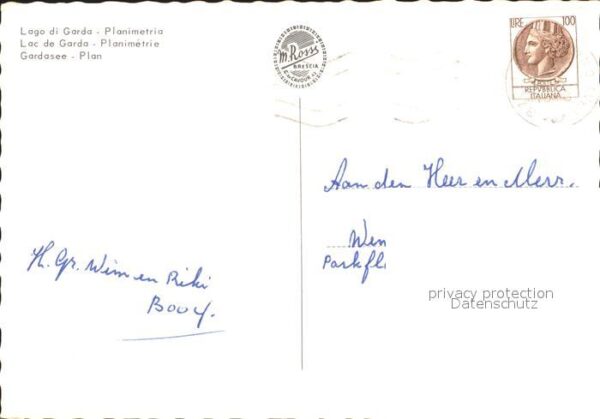 Lago di Garda - Planimetria
Lac de Garda - Planimétrie
Gardasee - Plan
M. Rossi
BRESCIA
LIRE 100
REPVBBLICA
ITALIANA
Aan den Heer en Mevr.
Wen
Parkfl
H. Gr. Wim en Riki
Bouy.
privacy protection
Datenschutz